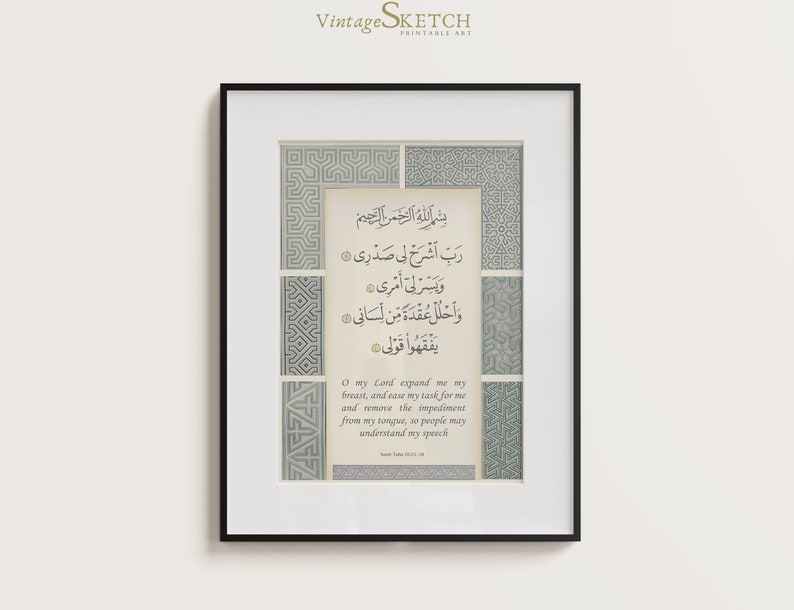 VintageSKETCH
PRINTABLE ART
بِسْمِ ٱللَّهِ ٱلرَّحْمَٰنِ ٱلرَّحِيمِ
رَبِّ ٱشْرَحْ لِى صَدْرِى
وَيَسِّرْ لِىٓ أَمْرِى
وَٱحْلُلْ عُقْدَةً مِّن لِّسَانِى
يَفْقَهُوا۟ قَوْلِى
O my Lord expand me my
breast, and ease my task for me
and remove the impediment
from my tongue, so people may
understand my speech
Surat Taha 20:25-28